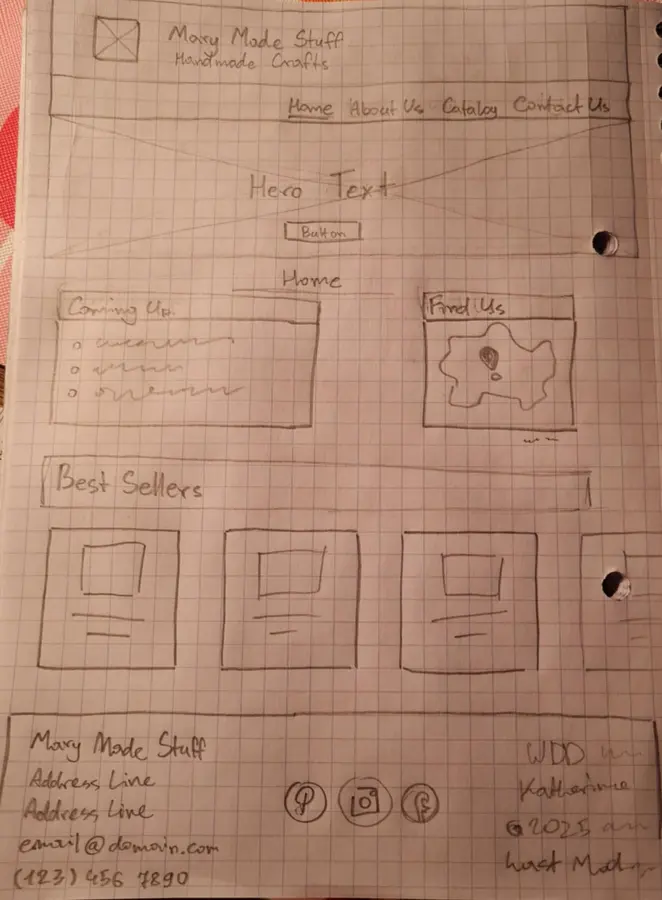 Mary Made Stuff
Handmade Crafts
Home About Us Catalog Contact Us
Hero Text
Button
Home
Coming Up
Find Us
Best Sellers
Mary Made Stuff
Address Line
Address Line
email@domain.com
(123) 456 7890
WDD
Katherine
©2025
Last Mod